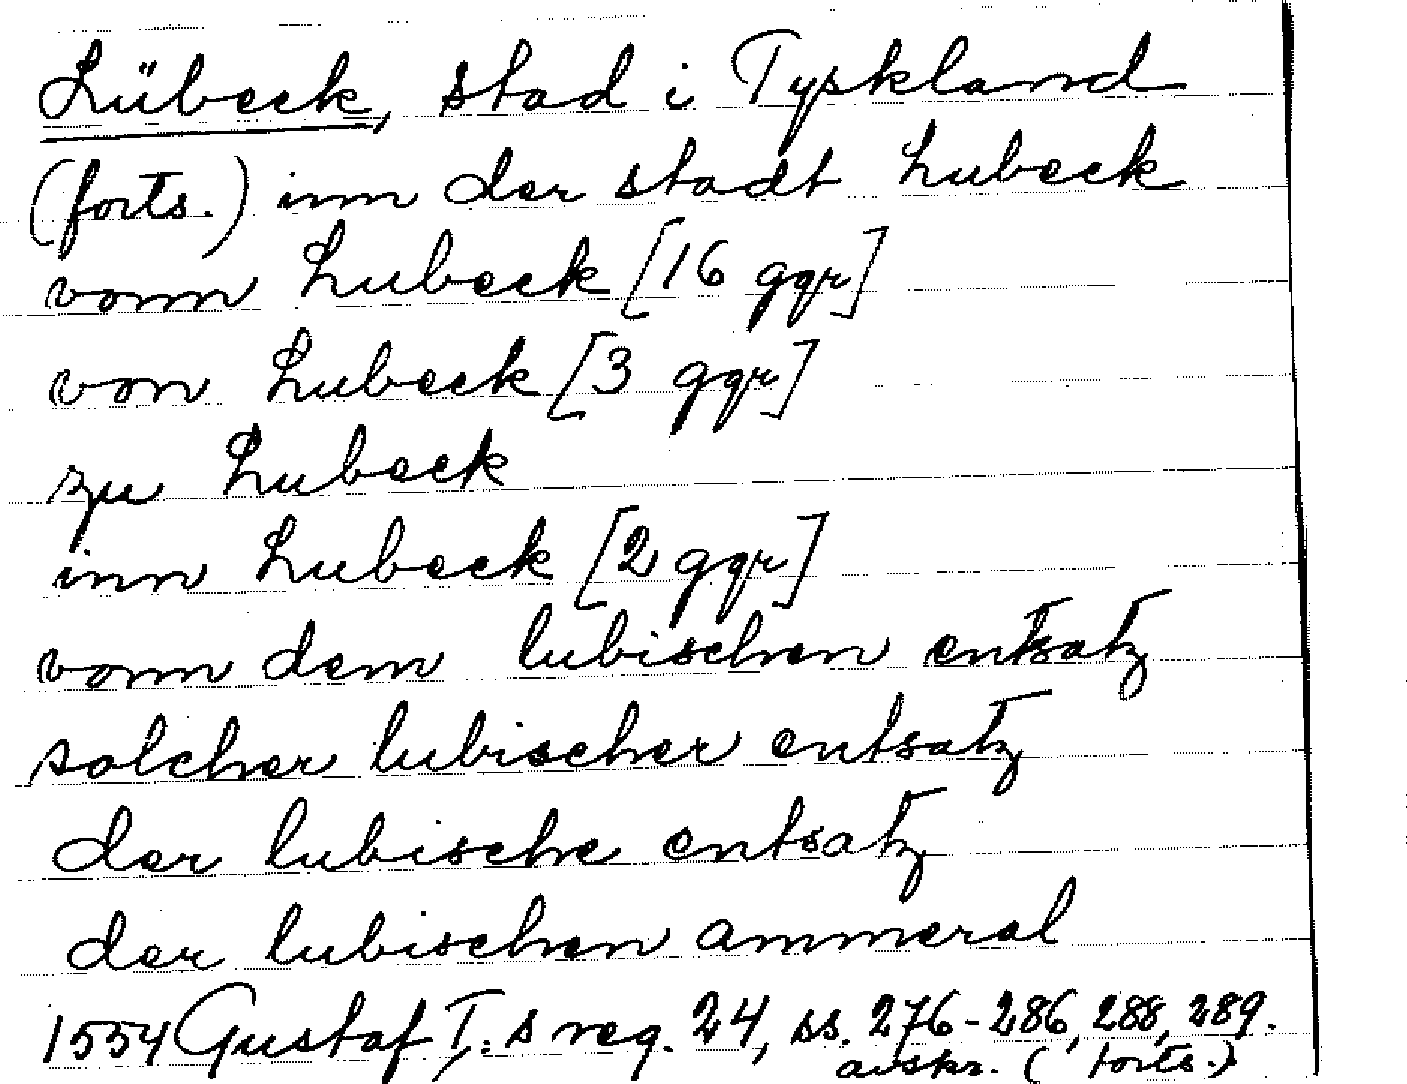 Lübeck, stad i Tyskland
(forts.) inn der stadt Lubeck
vonn Lubeck [16 ggr]
von Lubeck [3 ggr]
zu Lubeck
inn Lubeck [2 ggr]
vonn dem lubischen entsatz
solcher lubischer entsatz
der lubische entsatz
der lubischen ammeral
1554 Gustaf I:s reg. 24, ss. 276-286, 288, 289.
avskr. (forts.)